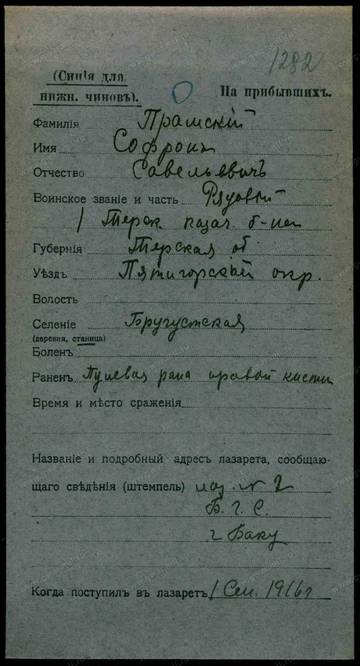 1282
(Синія для
нижн. чиновъ).
На прибывшихъ.
Фамилія Прамскій
Имя Софронъ
Отчество Савельевичъ
Воинское званіе и часть Рядовой
1 Терск. казач. б-неи
Губернія Терская об
Уѣздъ Пятигорскій окр.
Волость
Селеніе Бругустская
(деревня, станица)
Боленъ
Раненъ Пулевая рана правой кисти
Время и мѣсто сраженія
Названіе и подробный адресъ лазарета, сообщаю-
щаго свѣдѣнія (штемпель) лаз. № 2
Б. Г. С.
г Баку
Когда поступилъ въ лазаретъ 1 Сен. 1916 г